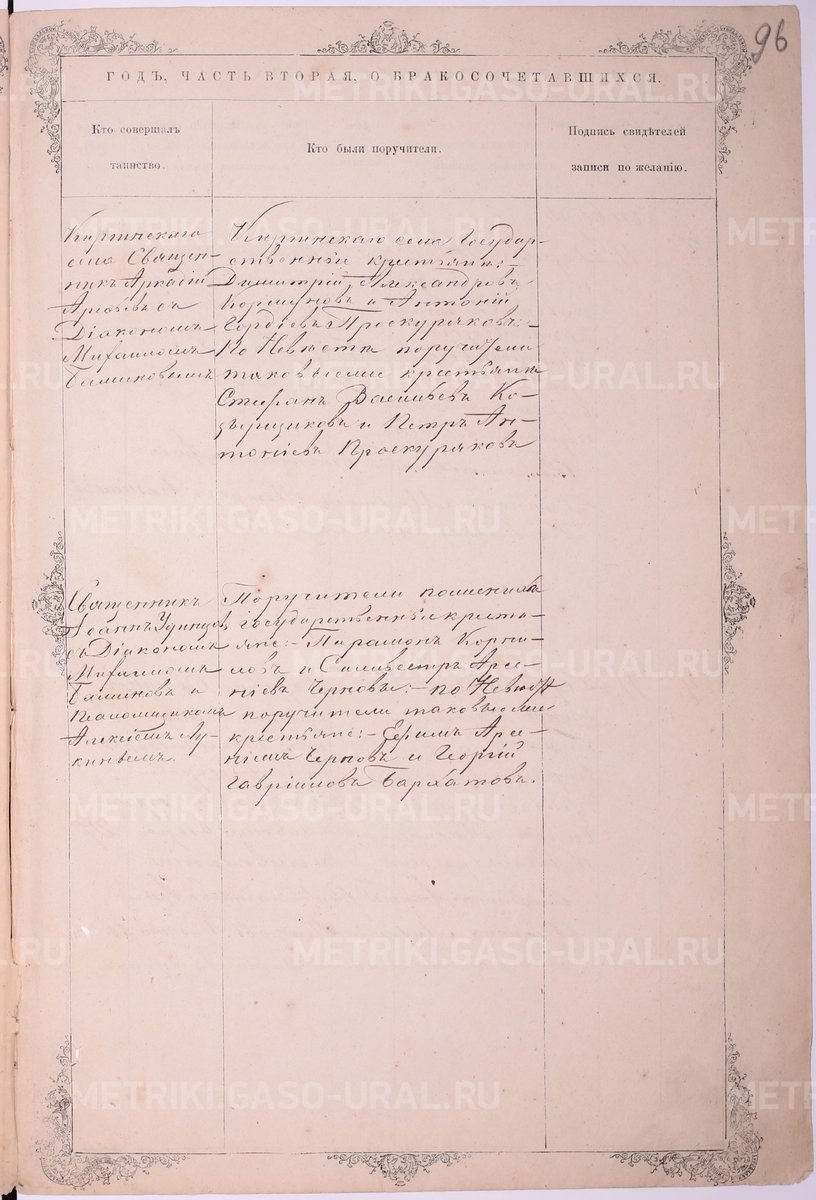 96
ГОДЪ, ЧАСТЬ ВТОРАЯ, О БРАКОСОЧЕТАВШИХСЯ.
Кто совершалъ
таинство.
Кто были поручители.
Подпись свидѣтелей
записи по желанію.
села Священ-
никъ Аркадій
съ
Діакономъ
Михаиломъ
села Государ-
ственніи крестьяни:
Димитрій Александровъ
Коршуновъ и Антоній
Гордіевъ Проскуряковъ:-
По Невѣстѣ поручители
таковыеже крестьяни
Стефанъ Васильевъ Ко-
зырщиковъ и Петръ Ан-
тоніевъ Проскуряковъ
Священникъ
Іоаннъ Удинцовъ
съ Діакономъ
Михаиломъ
и
Псаломщикомъ
Алексіемъ Лу-
кинымъ.
Поручители по женихѣ
государственніе кресть-
яне:- Парамонъ Корни-
ловъ и Сильвестръ Арсе-
ніевъ Черновъ:- по Невѣстѣ
поручители таковыеже
крестьяне:- Ефимъ Арсе-
ніевъ Черновъ и Георгій
Гавріиловъ Бархатовъ.
METRIKI.GASO-URAL.RU